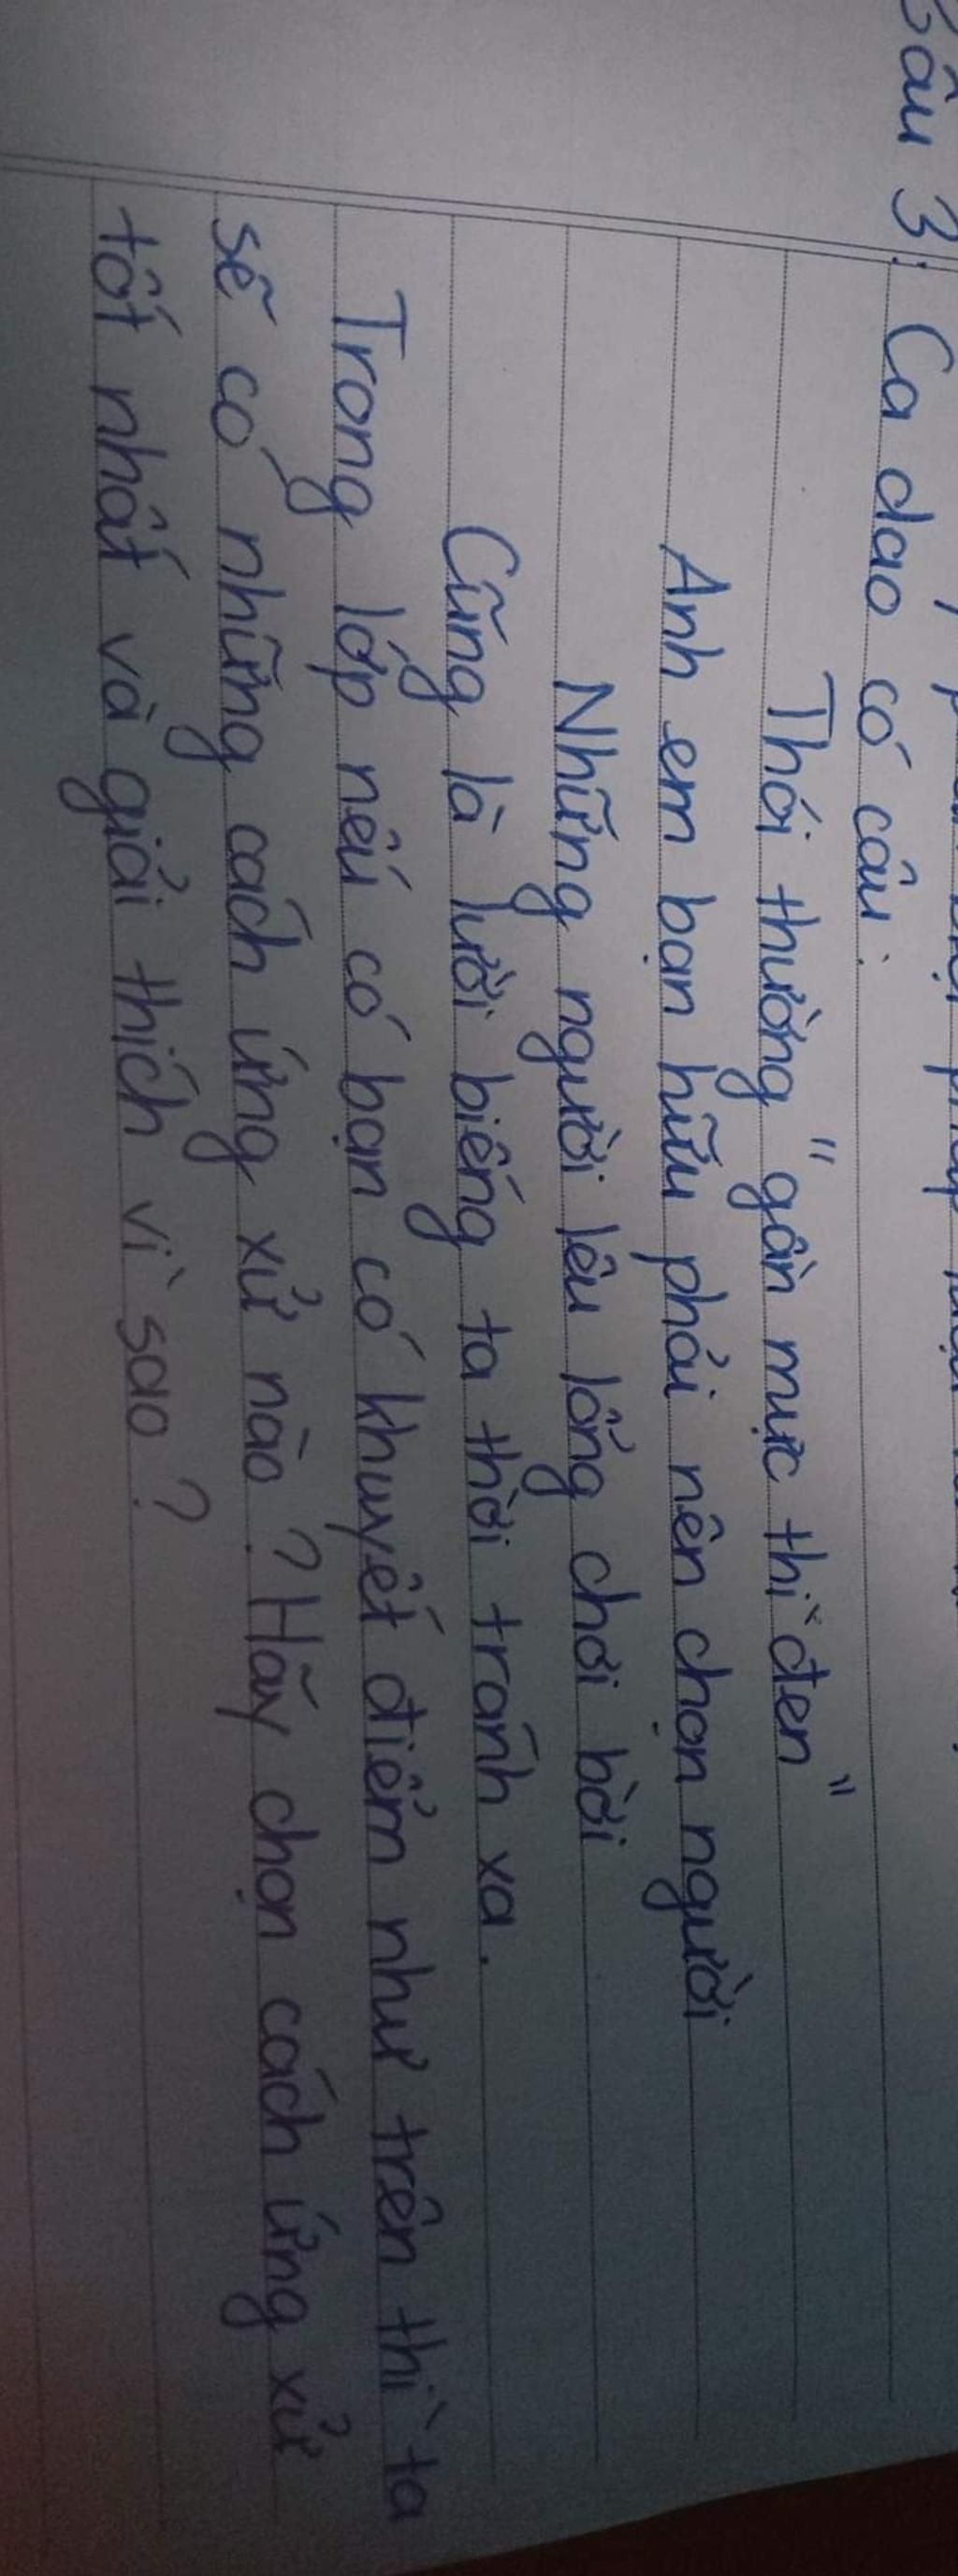 Câu 3: Ca dao có câu:
Thói thường "gần mực thì đen"
Anh em bạn hữu phải nên chọn người
Những người lêu lổng chơi bời
Cũng là lười biếng ta thời tránh xa.
Trong lớp nếu có bạn có khuyết điểm như trên thì ta
sẽ có những cách ứng xử nào? Hãy chọn cách ứng xử
tốt nhất và giải thích vì sao?